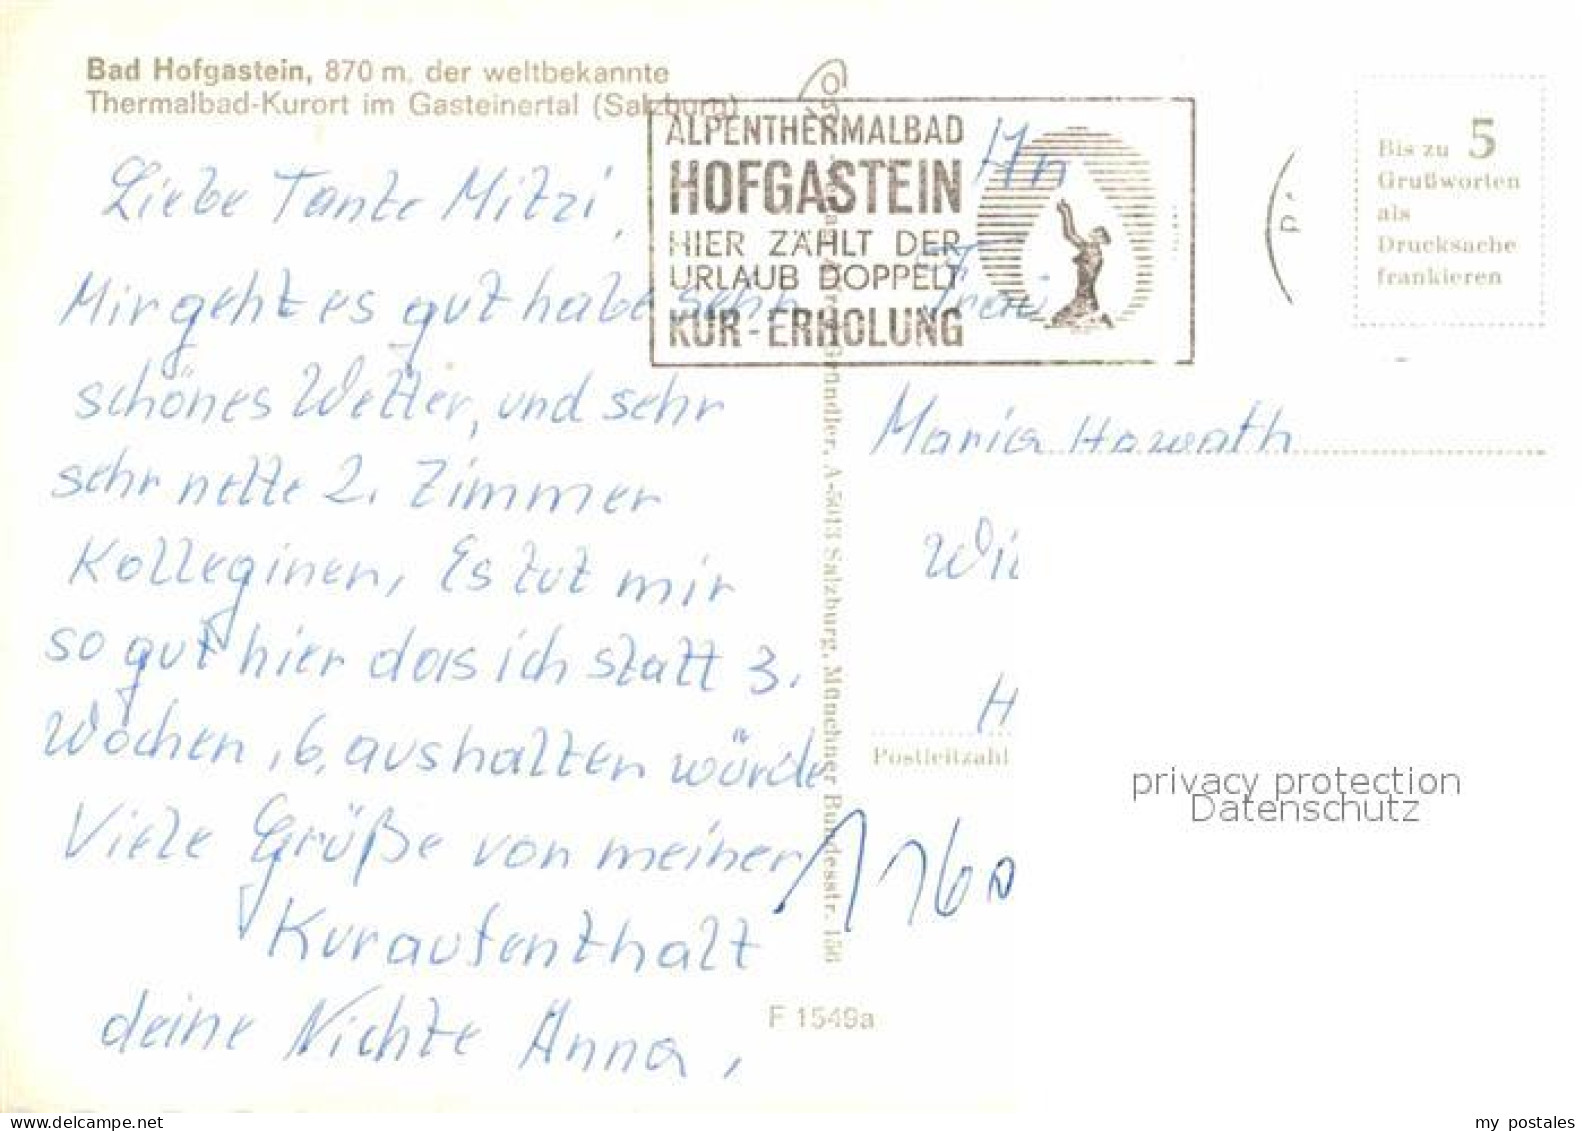 Bad Hofgastein, 870 m. der weltbekannte
Thermalbad-Kurort im Gasteinertal (Salzburg)
Liebe Tante Mitzi,
Mir geht es gut habe sehr
schönes Wetter, und sehr
sehr nette 2. Zimmer
Kolleginen, Es tut mir
so gut hier das ich statt 3.
Wochen, 6, aushalten würde
Viele Grüße von meiner
Kuraufenthalt
deine Nichte Anna,
ALPENTHERMALBAD
HOFGASTEIN
HIER ZÄHLT DER
URLAUB DOPPELT
KUR-ERHOLUNG
Gründler, A-5013 Salzburg, Münchner Bundesstr. 156
F 1549a
Bis zu 5
Grußworten
als
Drucksache
frankieren
An
Frau
Maria Howath
Wi
H
Postleitzahl
1160
privacy protection
Datenschutz
my postales